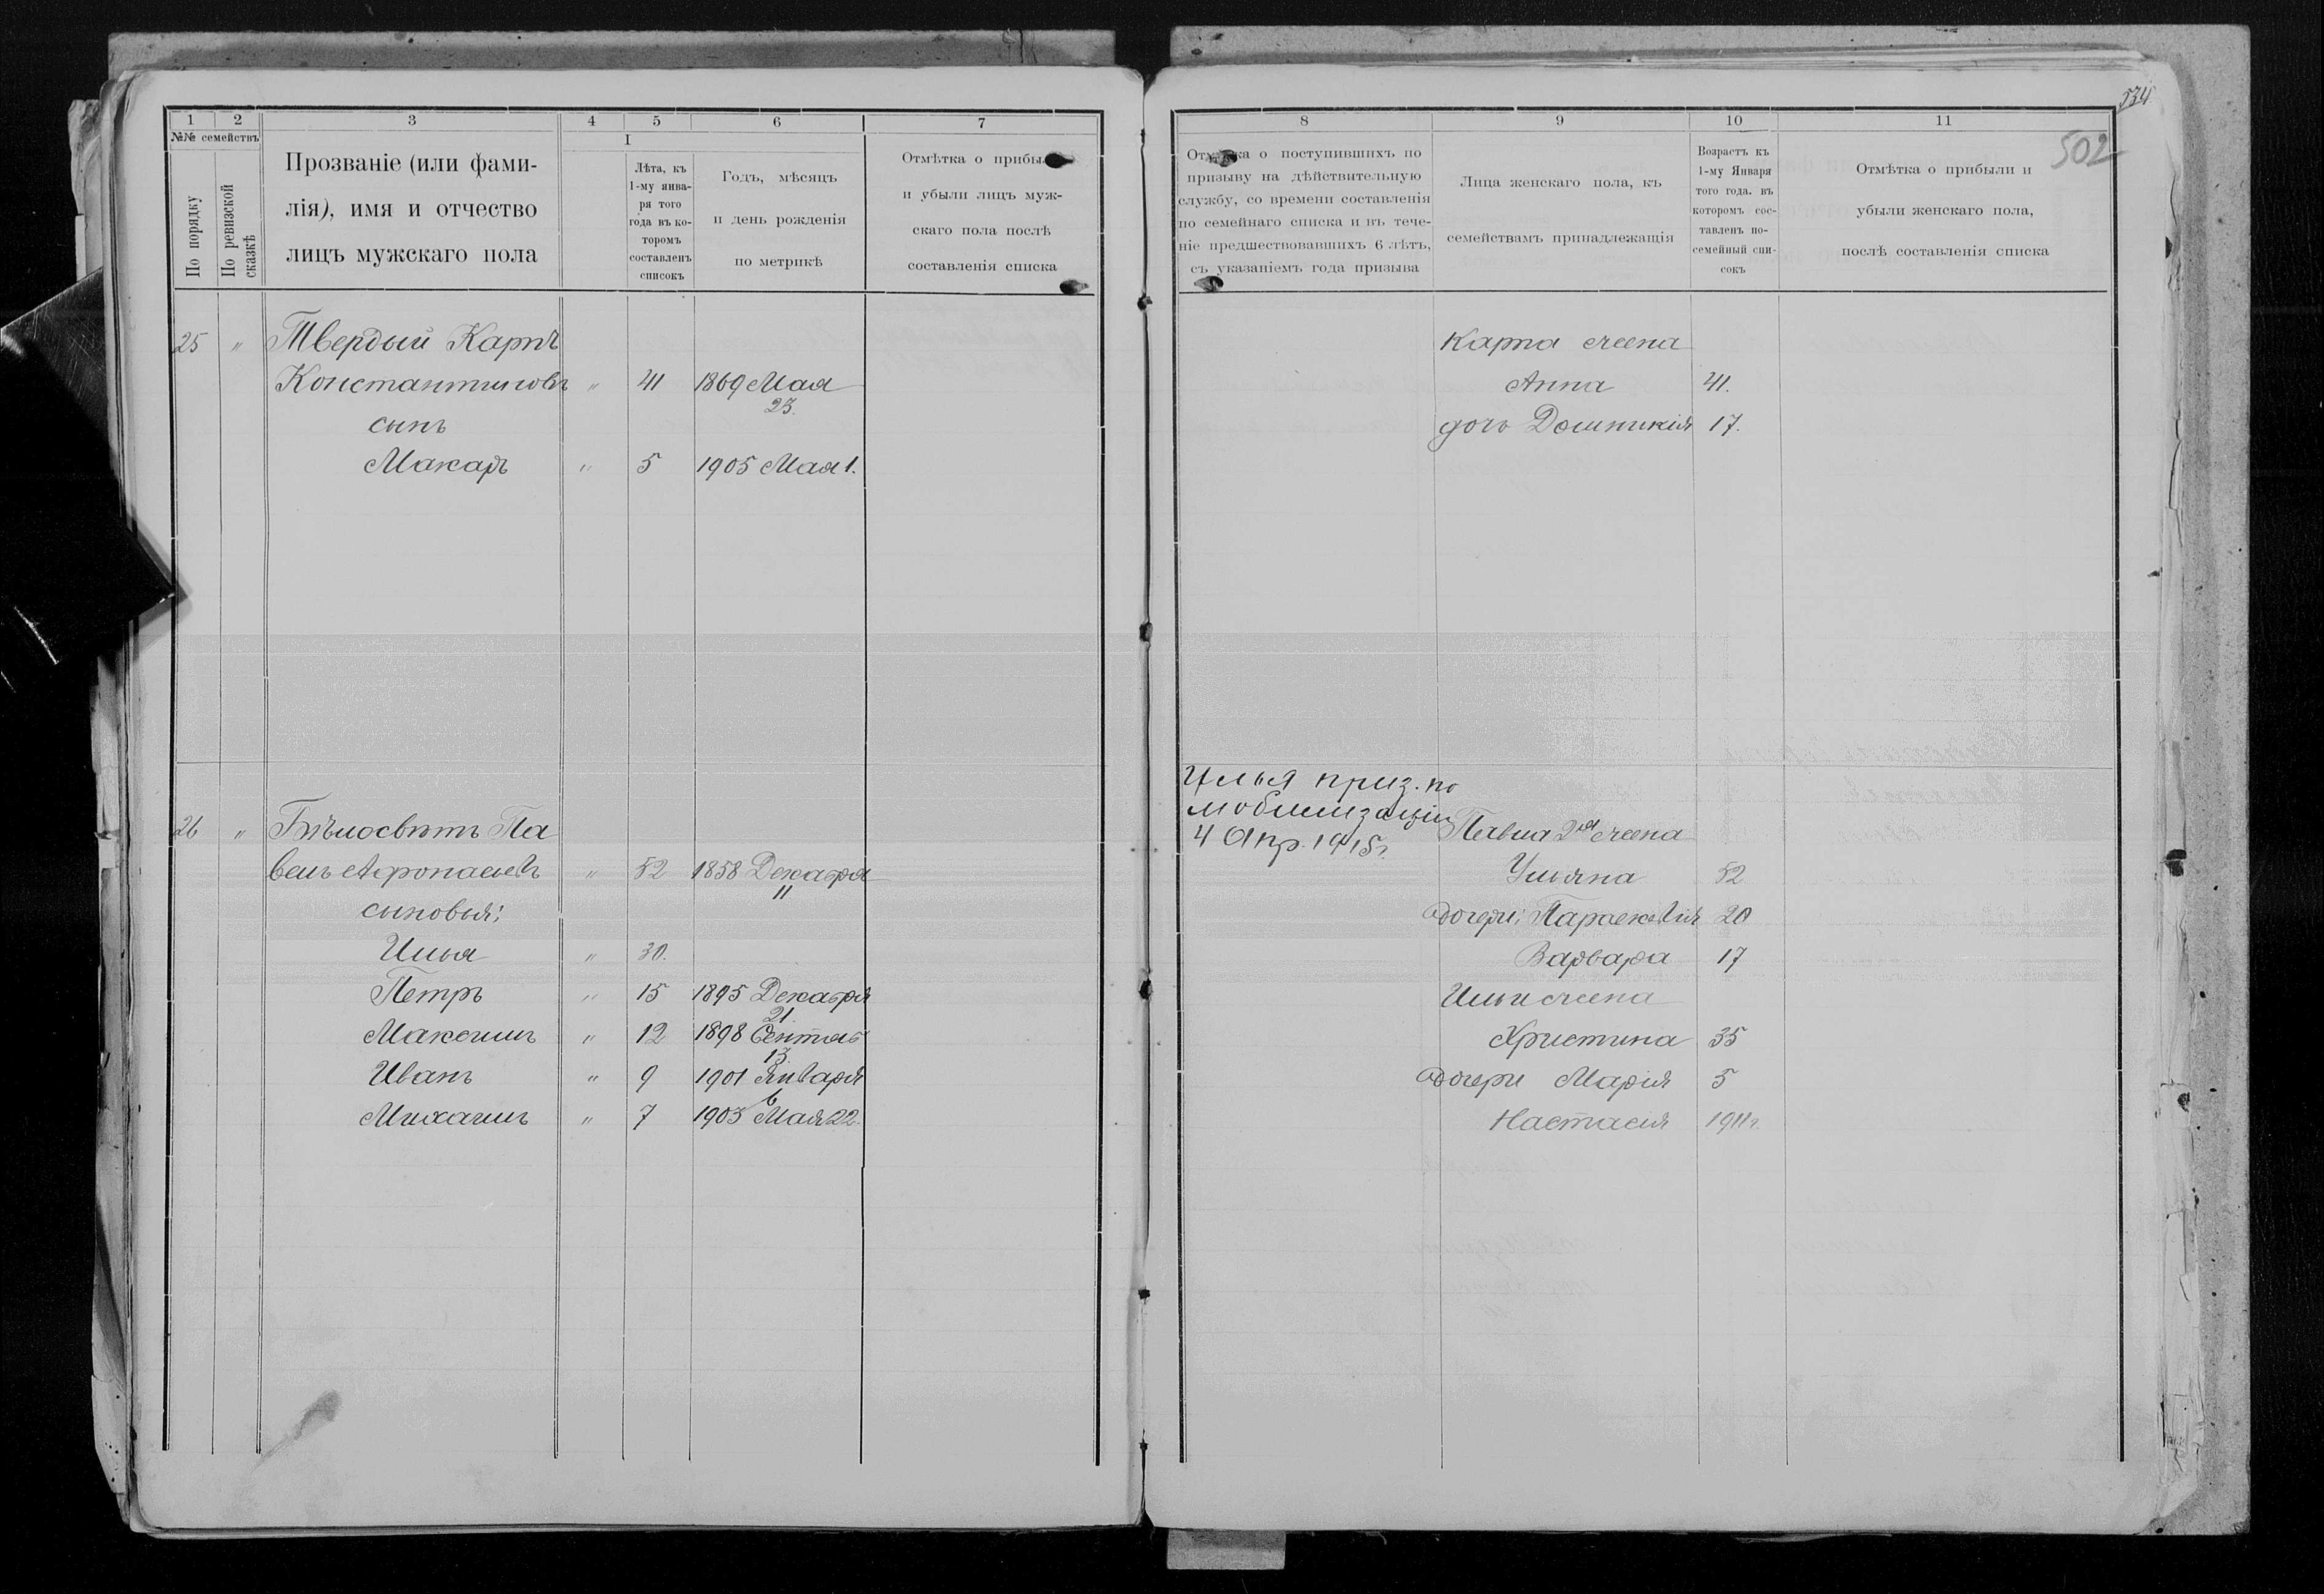 534
502
1 2 3 4 5 6 7
№№ семействъ
По порядку
По ревизской сказкѣ
Прозваніе (или фами-
лія), имя и отчество
лицъ мужскаго пола
I
Лѣта, къ
1-му янва-
ря того
года въ ко-
торомъ
составленъ
списокъ
Годъ, мѣсяцъ
и день рожденія
по метрикѣ
Отмѣтка о прибы
и убыли лицъ муж-
скаго пола послѣ
составленія списка
25 " Твердый Карпъ
Константиновъ " 41 1869 Мая
23.
сынъ
Макаръ " 5 1905 Мая 1.
26 " Бѣлосвѣтъ Па
велъ Афонасьевъ " 52 1858 Декабря
11
сыновья:
Илья " 30.
Петръ " 15 1895 Декабря
21.
Максимъ " 12 1898 Сентяб
13.
Иванъ " 9 1901 Января
6
Михаилъ " 7 1903 Мая 22.
8 9 10 11
Отмѣтка о поступившихъ по
призыву на дѣйствительную
службу, со времени составленія
по семейнаго списка и въ тече-
ніе предшествовавшихъ 6 лѣтъ,
съ указаніемъ года призыва
Лица женскаго пола, къ
семействамъ принадлежащія
Возрастъ къ
1-му Января
того года. въ
которомъ сос-
тавленъ по-
семейный спи-
сокъ
Отмѣтка о прибыли и
убыли женскаго пола,
послѣ составленія списка
Карпа жена
Анна 41.
дочь 17.
Илья приз. по
мобилизаціи
4 Апр. 1915 г.
Павла 2ая жена
Ульяна 52
дочери: Параскевія 20
Варвара 17
Ильи жена
Христина 35
дочери Марія 5
Настасія 1911 г.